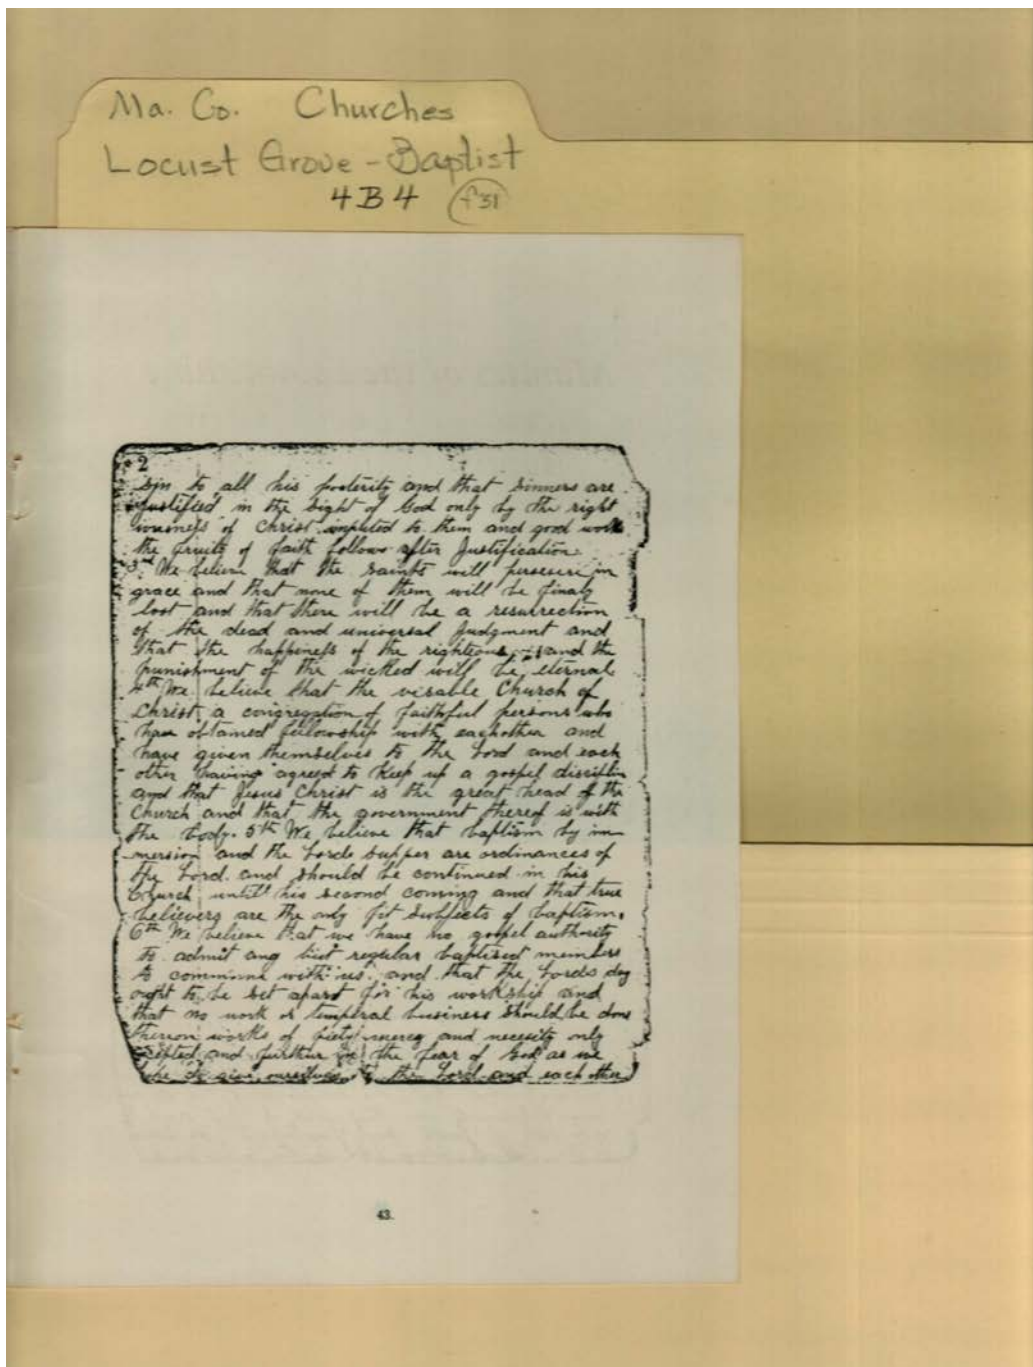 Ma. Co. Churches
Locust Grove - Baptist
4B4 f31
2
Sin to all his posterity and that sinners are
justified in the sight of God only by the right
iousness of Christ imputed to them and good works
the fruits of faith follows after Justification
3rd We believe that the saints will persevere in
grace and that none of them will be finaly
lost and that there will be a resurrection
of the dead and universal Judgment and
that the happiness of the righteous and the
punishment of the wicked will be eternal
4th We believe that the visable Church of
Christ a congregation of faithful persons who
have obtained fellowship with eachother and
have given themselves to the Lord and each
other having agreed to Keep up a gospel
and that Jesus Christ is the great head of the
Church and that the government thereof is with
the body. 5th We believe that baptism by im
mersion and the Lords supper are ordinances of
the Lord and should be continued in his
Church until his second coming and that true
believers are the only fit subjects of baptism.
6th We believe that we have no gospel authority
to admit any but regular baptised members
to commune with us and that the Lords day
ought to be set apart for his workship and
that no work or temperal business should be done
thereon works of piety mercy and necesity only
and further in the fear of God as we
give ourselves to the Lord and each other
43.